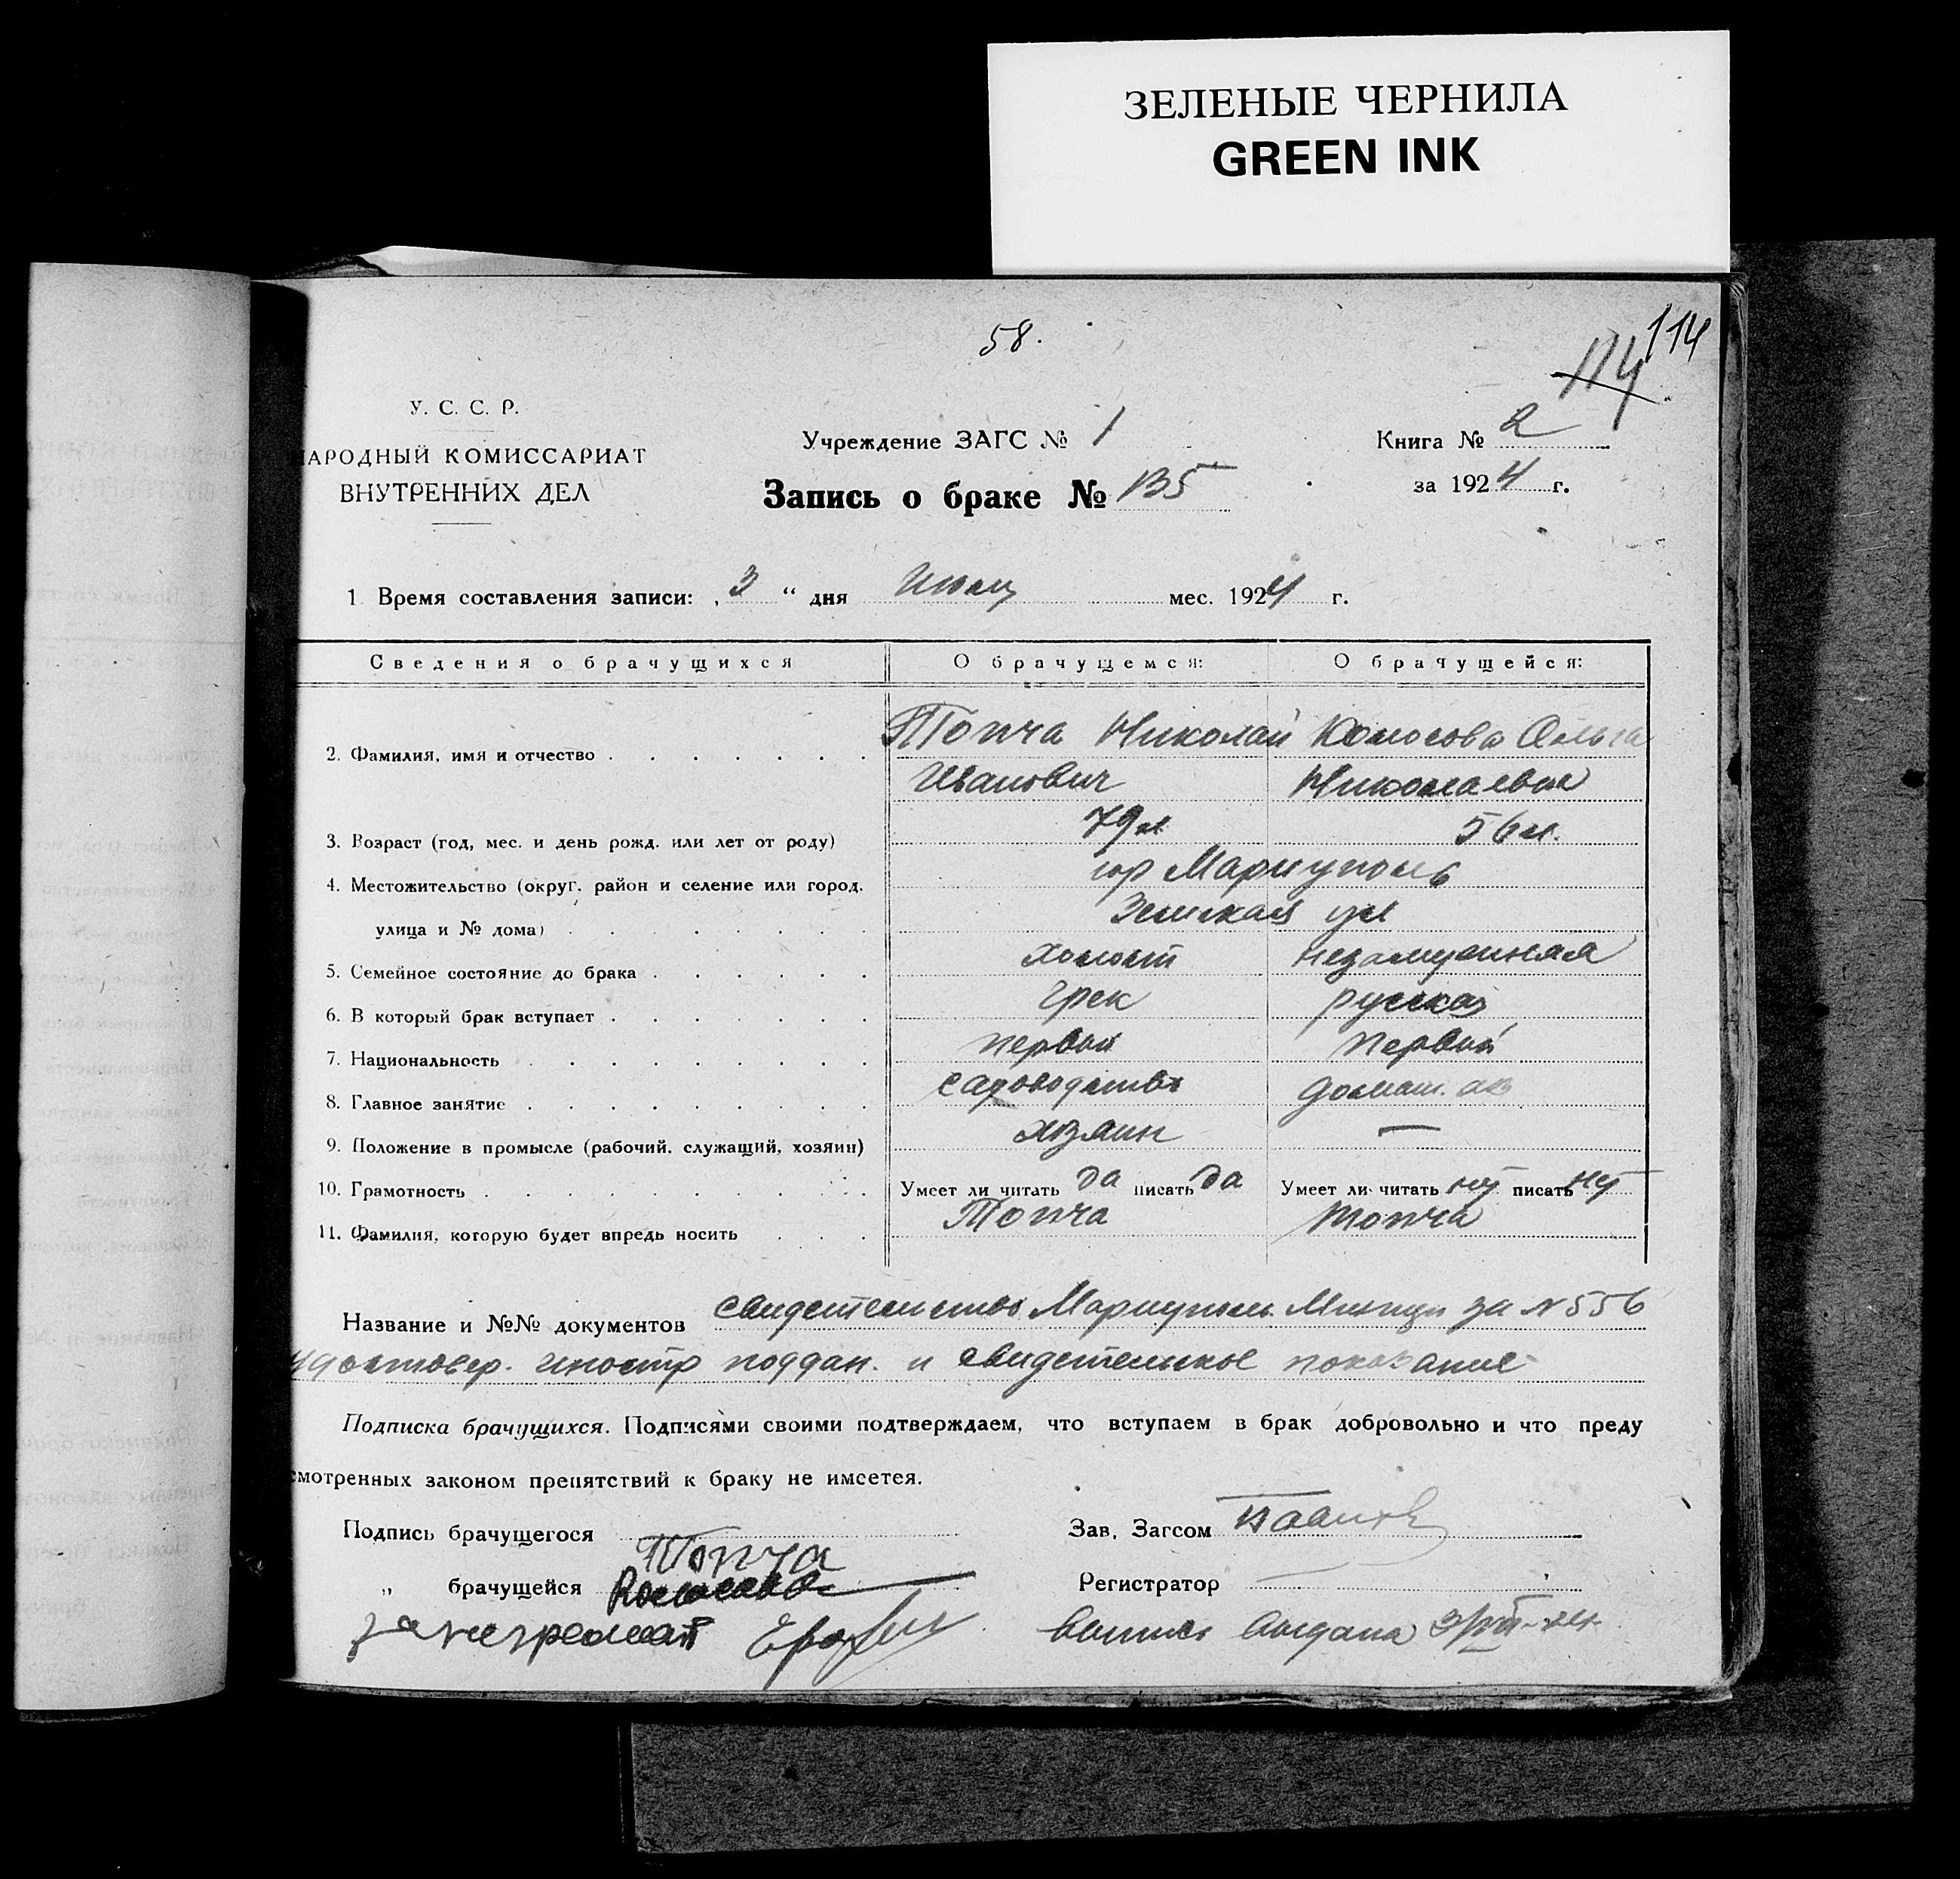 ЗЕЛЕНЫЕ ЧЕРНИЛА
GREEN INK
58.
114
114
У. С. С. Р.
НАРОДНЫЙ КОМИССАРИАТ
ВНУТРЕННИХ ДЕЛ
Учреждение ЗАГС № 1
Запись о браке № 135
Книга № 2
за 1924 г.
1. Время составления записи: „3“ дня Июля мес. 1924 г.
Сведения о брачущихся О брачущемся: О брачущейся:
2. Фамилия, имя и отчество Топча Николай Колосова Ольга
Иванович Николаевна
3. Возраст (год, мес. и день рожд. или лет от роду) 79 л. 56 л.
4. Местожительство (округ, район и селение или город, гор Мариуполь
улица и № дома) Земская ул
5. Семейное состояние до брака холост незамужняя
6. В который брак вступает грек русская
7. Национальность первый первый
8. Главное занятие садоводство домаш. хоз
9. Положение в промысле (рабочий, служащий, хозяин) хозяин —
10. Грамотность Умеет ли читать да писать да Умеет ли читать нет писать нет
11. Фамилия, которую будет впредь носить Топча Топча
Название и №№ документов свидетельство Мариуполь Милиции за № 556
удостовер. иностр поддан. и свидетельское показание
Подписка брачущихся. Подписями своими подтверждаем, что вступаем в брак добровольно и что преду
смотренных законом препятствий к браку не имеется.
Подпись брачущегося Топча
Зав. Загсом
„ брачущейся Колосова
Регистратор
за неграмот
Выпись выдана 3/VII-24.